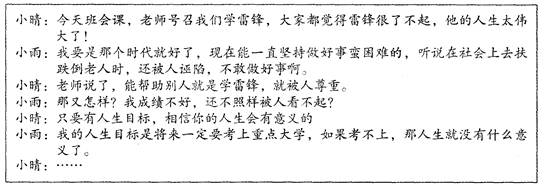 小晴：今天班会课，老师号召我们学雷锋，大家都觉得雷锋很了不起，他的人生太伟
大了！
小雨：我要是那个时代就好了，现在能一直坚持做好事蛮困难的，听说在社会上去扶
跌倒老人时，还被人诬陷，不敢做好事啊。
小晴：老师说了，能帮助别人就是学雷锋，就被人尊重。
小雨：那又怎样？我成绩不好，还不照样被人看不起？
小晴：只要有人生目标，相信你的人生会有意义的
小雨：我的人生目标是将来一定要考上重点大学，如果考不上，那人生就没有什么意
义了。
小晴：……